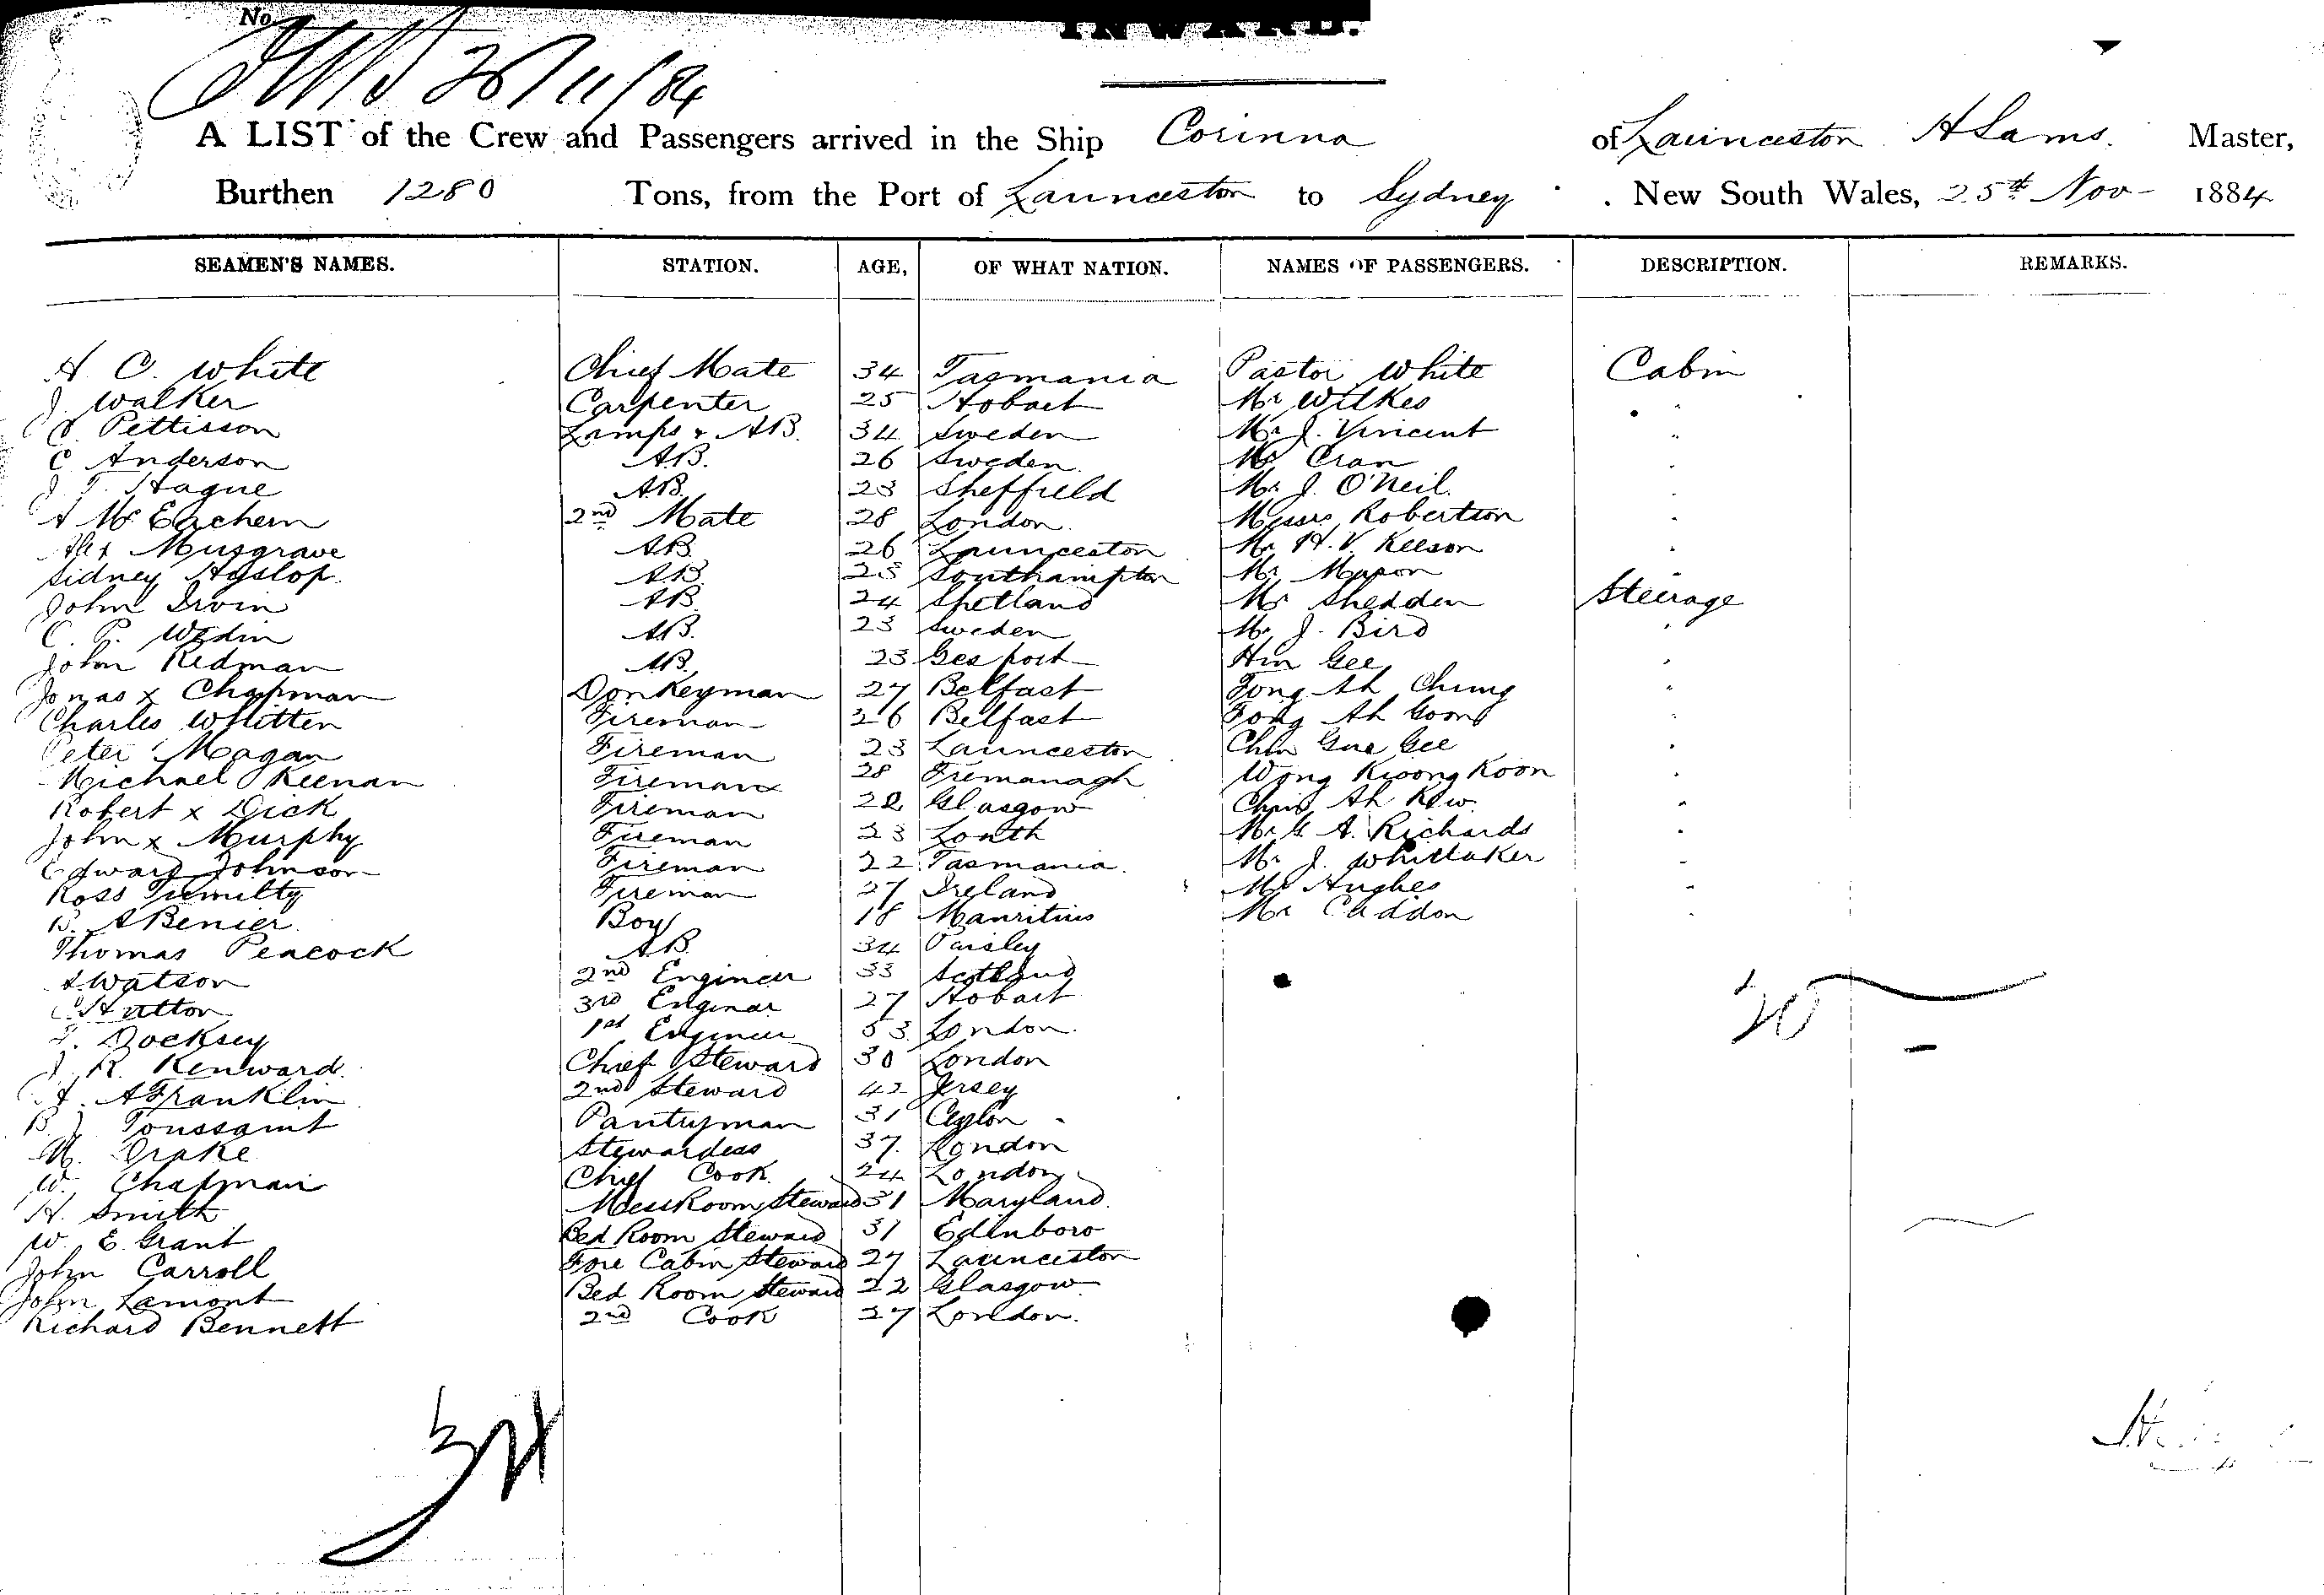 No.
INWARD.
26/11/84
A LIST of the Crew and Passengers arrived in the Ship Corinna of Launceston A Lams. Master,
Burthen 1280 Tons, from the Port of Launceston to Sydney. New South Wales, 25th Nov- 1884
SEAMEN'S NAMES. STATION. AGE, OF WHAT NATION. NAMES OF PASSENGERS. DESCRIPTION. REMARKS.
A. C. White Chief Mate 34 Tasmania Pastor White Cabin
J. Walker Carpenter 25 Hobart Mr Wilkes "
Pettisson Lamps & AB. 34 Sweden Mr J. Vincent "
C Anderson AB. 26 Sweden. Cran "
J. T. Hague AB. 23 Sheffield Mr J. O'Neil. "
A McEachern 2nd Mate 28 London. Messrs Robertson "
Alex Musgrave AB. 26 Launceston Mr H. V. Keeson "
Sidney Hyslop. AB. 23 Southampton Mr Mason "
John Irvin AB. 24 Shetland Mr Shedden Steerage
C. Wedin AB. 23 Sweden Mr J. Bird "
John Redman AB. 23 Gosport Hin Gee "
Jonas x Chapman Donkeyman 27 Belfast Fong Ah Chung "
Charles Whitten Fireman 26 Belfast Fong Ah Goon "
Peter Magan Fireman 23 Launceston Chin Gue Gee "
Michael Keenan Fireman 28 Fremanagh Wong Kwong Koon "
Robert x Dick Fireman 28 Glasgow Ah Kew. "
John x Murphy Fireman 23 Louth Mr G A. Richards "
Edward Johnson Fireman 22 Tasmania. Mr J. Whittaker "
Ross Tumilty Fireman 27 Ireland Hughes "
B. ABenier. Boy 18 Mauritius Mr Claddon "
Thomas Peacock AB. 34 Paisley
A Watson 2nd Engineer 33 Scotland
C Hutton 3rd Engineer 27 Hobart
T. Docksey 1st Engineer 53 London.
J. R. Kenward. Chief Steward 30 London
A Franklin 2nd Steward 42 Jersey
B J Toussaint Pantryman 31 Ceylon
M. Drake Stewardess 37. London
W. Chapman Chief Cook. 24 London
H. Smith Mess Room Steward 31 Maryland.
W. E. Grant Bed Room Steward 31 Edinboro
John Carroll Fore Cabin Steward 27 Launceston
John Lamont Bed Room Steward 22 Glasgow
Richard Bennett 2nd Cook 27 London.
20
34